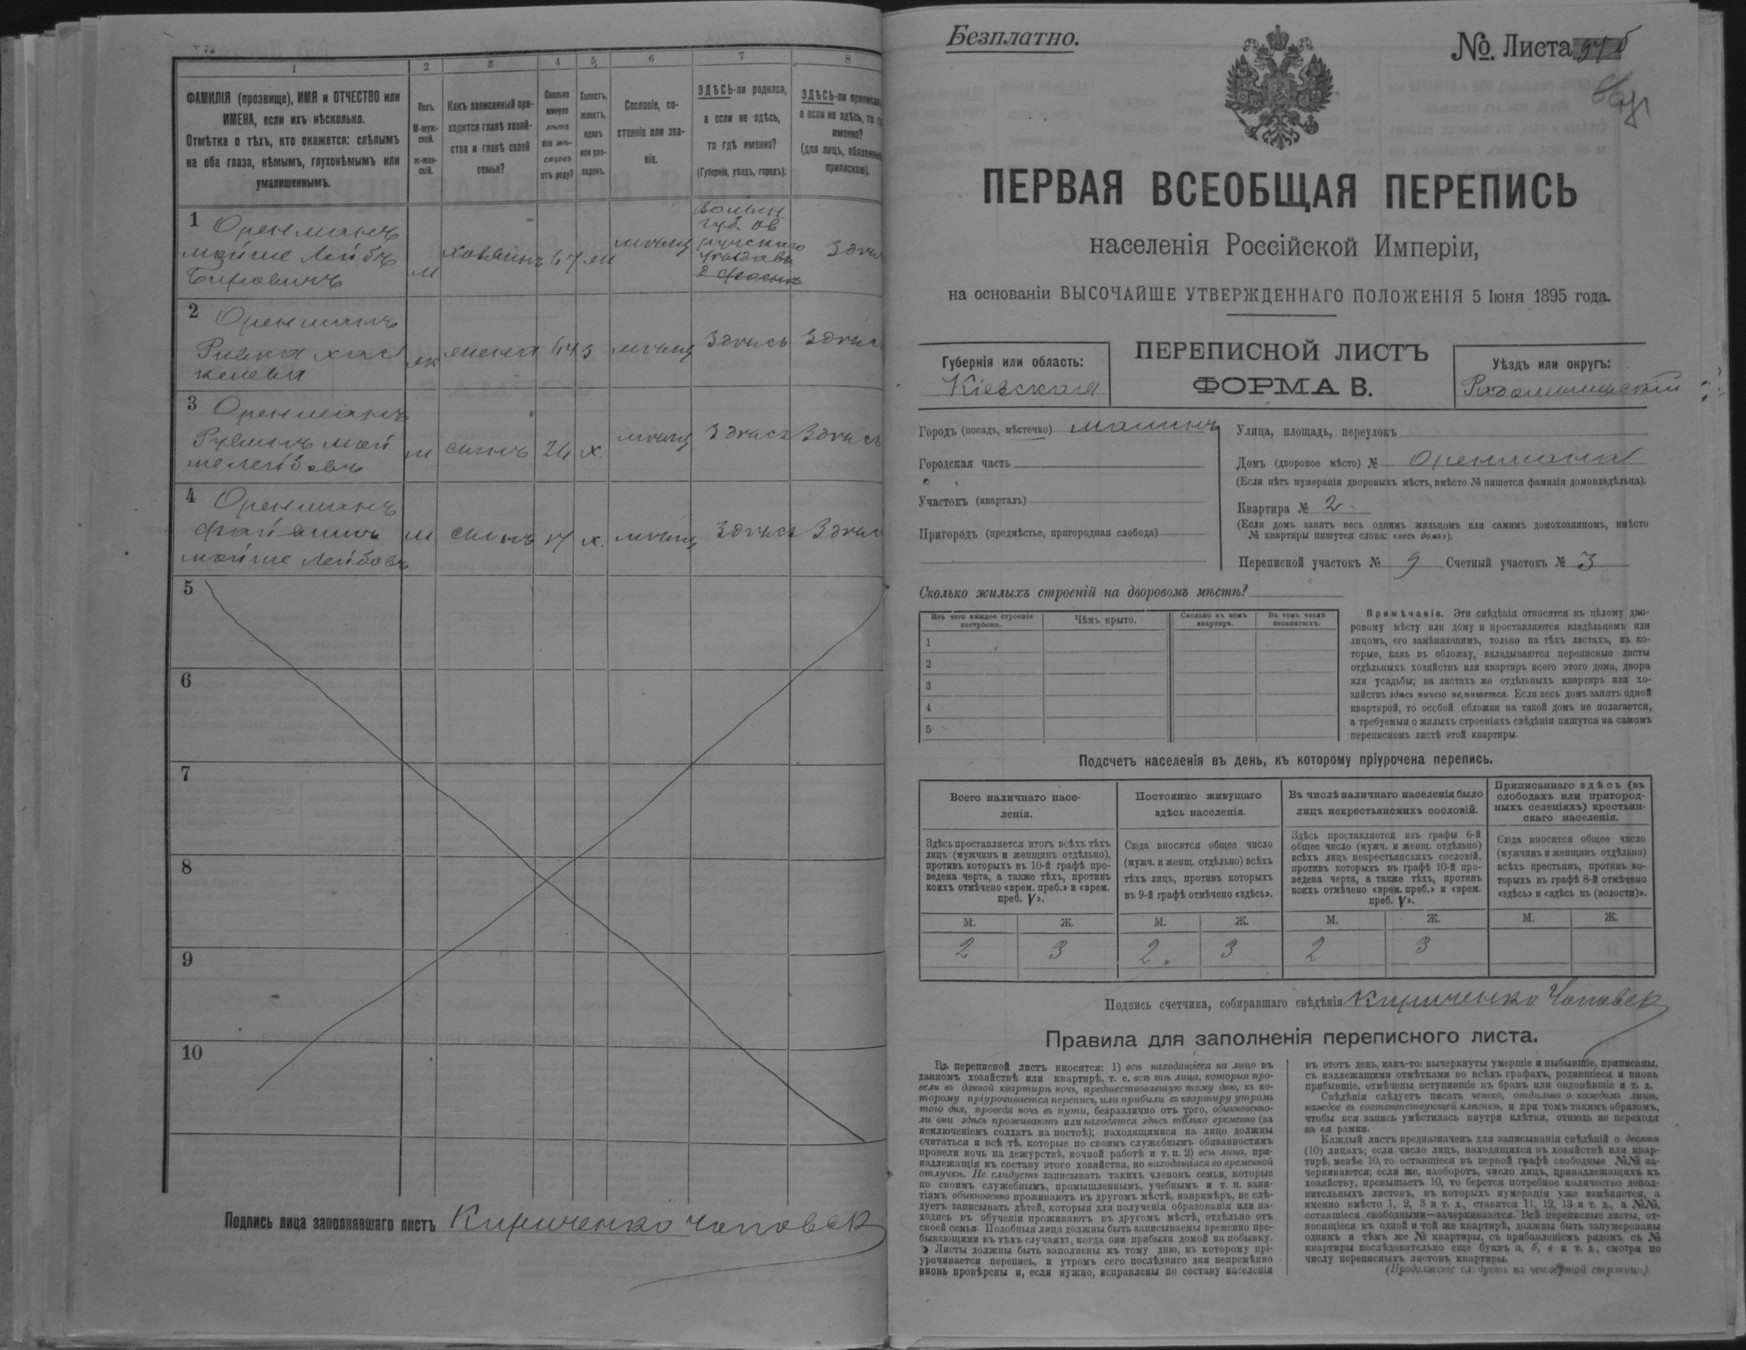 1 2 3 4 5 6 7 8
ФАМИЛІЯ (прозвище), ИМЯ и ОТЧЕСТВО или
ИМЕНА, если ихъ нѣсколько.
Отмѣтка о тѣхъ, кто окажется: слѣпымъ
на оба глаза, нѣмымъ, глухонѣмымъ или
умалишеннымъ.
Полъ.
М-муж-
ской.
ж-жен-
скій.
Какъ записанный при-
ходится главѣ хозяй-
ства и главѣ своей
семьи?
Сколько
минуло
лѣтъ
или мѣ-
сяцевъ
отъ роду?
Холостъ,
женатъ,
вдовъ
или раз-
веденъ.
Сословіе, со-
стояніе или зва-
ніе.
ЗДѢСЬ-ли родился,
а если не здѣсь,
то гдѣ именно?
(Губернія, уѣздъ, городъ).
ЗДѢСЬ-ли приписанъ,
а если не здѣсь, то гдѣ
именно?
(для лицъ, обязанныхъ
припискою).
1 Оренманъ
мойше Лейбъ
Берковичъ
м хозяинъ 64 Здѣсь
2 Оренманъ
Ривка
ж жена Здѣсь Здѣсь
3 Оренманъ
Рувинъ мой
шелейбовъ
м сынъ 26 х. Здѣсь Здѣсь
4 Оренманъ
мойше Лейбовъ
м сынъ 17 х. Здѣсь Здѣсь
5
6
7
8
9
10
Подпись лица заполнявшаго листъ Кириченко Чоповск
Безплатно.
№ Листа
ПЕРВАЯ ВСЕОБЩАЯ ПЕРЕПИСЬ
населенія Россійской Имперіи,
на основаніи ВЫСОЧАЙШЕ УТВЕРЖДЕННАГО ПОЛОЖЕНІЯ 5 Іюня 1895 года.
Губернія или область:
Кіевская
ПЕРЕПИСНОЙ ЛИСТЪ
ФОРМА В.
Уѣздъ или округъ:
Радомысльскій
Городъ (посадъ, мѣстечко) малинъ
Городская часть
Участокъ (кварталъ)
Пригородъ (предмѣстье, пригородная слобода)
Улица, площадь, переулокъ
Домъ (дворовое мѣсто) № Оренмана
(Если нѣтъ нумераціи дворовыхъ мѣстъ, вмѣсто № пишется фамилія домовладѣльца).
Квартира № 2
(Если домъ занятъ весь однимъ жильцомъ или самимъ домохозяиномъ, вмѣсто
№ квартиры пишутся слова: «весь домъ»).
Переписной участокъ № 9 Счетный участокъ № 3
Сколько жилыхъ строеній на дворовомъ мѣстѣ?
Изъ чего каждое строеніе
построено.
Чѣмъ крыто.
Сколько въ немъ
квартиръ.
Въ томъ числѣ
незанятыхъ.
1
2
3
4
5
Примѣчаніе. Эти свѣдѣнія относятся къ цѣлому дво-
ровому мѣсту или дому и проставляются владѣльцемъ или
лицомъ, его замѣняющимъ, только на тѣхъ листахъ, въ ко-
торые, какъ въ обложку, вкладываются переписные листы
отдѣльныхъ хозяйствъ или квартиръ всего этого дома, двора
или усадьбы; на листахъ же отдѣльныхъ квартиръ или хо-
зяйствъ здѣсь ничего не пишется. Если весь домъ занятъ одной
квартирой, то особой обложки на такой домъ не полагается,
а требуемыя о жилыхъ строеніяхъ свѣдѣнія пишутся на самомъ
переписномъ листѣ этой квартиры.
Подсчетъ населенія въ день, къ которому пріурочена перепись.
Всего наличнаго насе-
ленія.
Здѣсь проставляется итогъ всѣхъ тѣхъ
лицъ (мужчинъ и женщинъ отдѣльно),
противъ которыхъ въ 10-й графѣ про-
ведена черта, а также тѣхъ, противъ
коихъ отмѣчено «врем. преб.» и «врем.
преб. V».
Постоянно живущаго
здѣсь населенія.
Сюда вносится общее число
(мужч. и женщ. отдѣльно) всѣхъ
тѣхъ лицъ, противъ которыхъ
въ 9-й графѣ отмѣчено «здѣсь».
Въ числѣ наличнаго населенія было
лицъ некрестьянскихъ сословій.
Здѣсь проставляется изъ графы 6-й
общее число (мужч. и женщ. отдѣльно)
всѣхъ лицъ некрестьянскихъ сословій,
противъ которыхъ въ графѣ 10-й про-
ведена черта, а также тѣхъ, противъ
коихъ отмѣчено «врем. преб.» и «врем.
преб. V».
Приписаннаго здѣсь (въ
слободахъ или пригород-
ныхъ селеніяхъ) крестьян-
скаго населенія.
Сюда вносится общее число
(мужчинъ и женщинъ отдѣльно)
всѣхъ крестьянъ, противъ ко-
торыхъ въ графѣ 8-й отмѣчено
«здѣсь» и «здѣсь къ (волости)».
М. Ж. М. Ж. М. Ж. М. Ж.
2 3 2. 3 2 3
Подпись счетчика, собиравшаго свѣдѣнія Кириченко Чоповск
Правила для заполненія переписного листа.
Въ переписной листъ вносятся: 1) всѣ находящіеся на лицо въ
данномъ хозяйствѣ или квартирѣ, т. е. всѣ тѣ лица, которыя про-
вели въ данной квартирѣ ночь, предшествовавшую тому дню, къ ко-
торому пріурочивается перепись, или прибыли въ квартиру утромъ
того дня, проведя ночь въ пути, безразлично отъ того, обыкновенно-
ли они здѣсь проживаютъ или находятся здѣсь только временно (за
исключеніемъ солдатъ на постоѣ); находящимися на лицо должны
считаться и всѣ тѣ, которые по своимъ служебнымъ обязанностямъ
провели ночь на дежурствѣ, ночной работѣ и т. п. 2) всѣ лица, при-
надлежащія къ составу этого хозяйства, но находящіяся во временной
отлучкѣ. Не слѣдуетъ записывать такихъ членовъ семьи, которые
по своимъ служебнымъ, промышленнымъ, учебнымъ и т. п. заня-
тіямъ обыкновенно проживаютъ въ другомъ мѣстѣ, напримѣръ, не слѣ-
дуетъ записывать дѣтей, которыя для полученія образованія или на-
ходясь въ обученіи проживаютъ въ другомъ мѣстѣ, отдѣльно отъ
своей семьи. Подобныя лица должны быть записываемы временно пре-
бывающими въ тѣхъ случаяхъ, когда они прибыли домой на побывку.
Листы должны быть заполнены къ тому дню, къ которому прі-
урочивается перепись, и утромъ сего послѣдняго дня непремѣнно
вновь провѣрены и, если нужно, исправлены по составу населенія
въ этотъ день, какъ-то: вычеркнуты умершіе и выбывшіе, приписаны,
съ надлежащими отмѣтками во всѣхъ графахъ, родившіеся и вновь
прибывшіе, отмѣчены вступившіе въ бракъ или овдовѣвшіе и т. д.
Свѣдѣнія слѣдуетъ писать четко, отдѣльно о каждомъ лицѣ,
каждое въ соотвѣтствующей клѣткѣ, и при томъ такимъ образомъ,
чтобы вся запись умѣстилась внутри клѣтки, отнюдь не переходя
за ея рамки.
Каждый листъ предназначенъ для записыванія свѣдѣній о десяти
(10) лицахъ; если число лицъ, находящихся въ хозяйствѣ или квар-
тирѣ, менѣе 10, то оставшіеся въ первой графѣ свободные №№ за-
черкиваются; если же, наоборотъ, число лицъ, принадлежащихъ къ
хозяйству, превышаетъ 10, то берется потребное количество допол-
нительныхъ листовъ, въ которыхъ нумерація уже измѣняется, а
именно вмѣсто 1, 2, 3 и т. д., ставится 11, 12, 13 и т. д., а №№,
оставшіеся свободными—зачеркиваются. Всѣ переписные листы, от-
носящіеся къ одной и той же квартирѣ, должны быть занумерованы
однимъ и тѣмъ же № квартиры, съ прибавленіемъ рядомъ съ №
квартиры послѣдовательно еще буквъ а, б, в и т. д., смотря по
числу переписныхъ листовъ квартиры.
(Продолженіе слѣдуетъ на четвертой страницѣ)